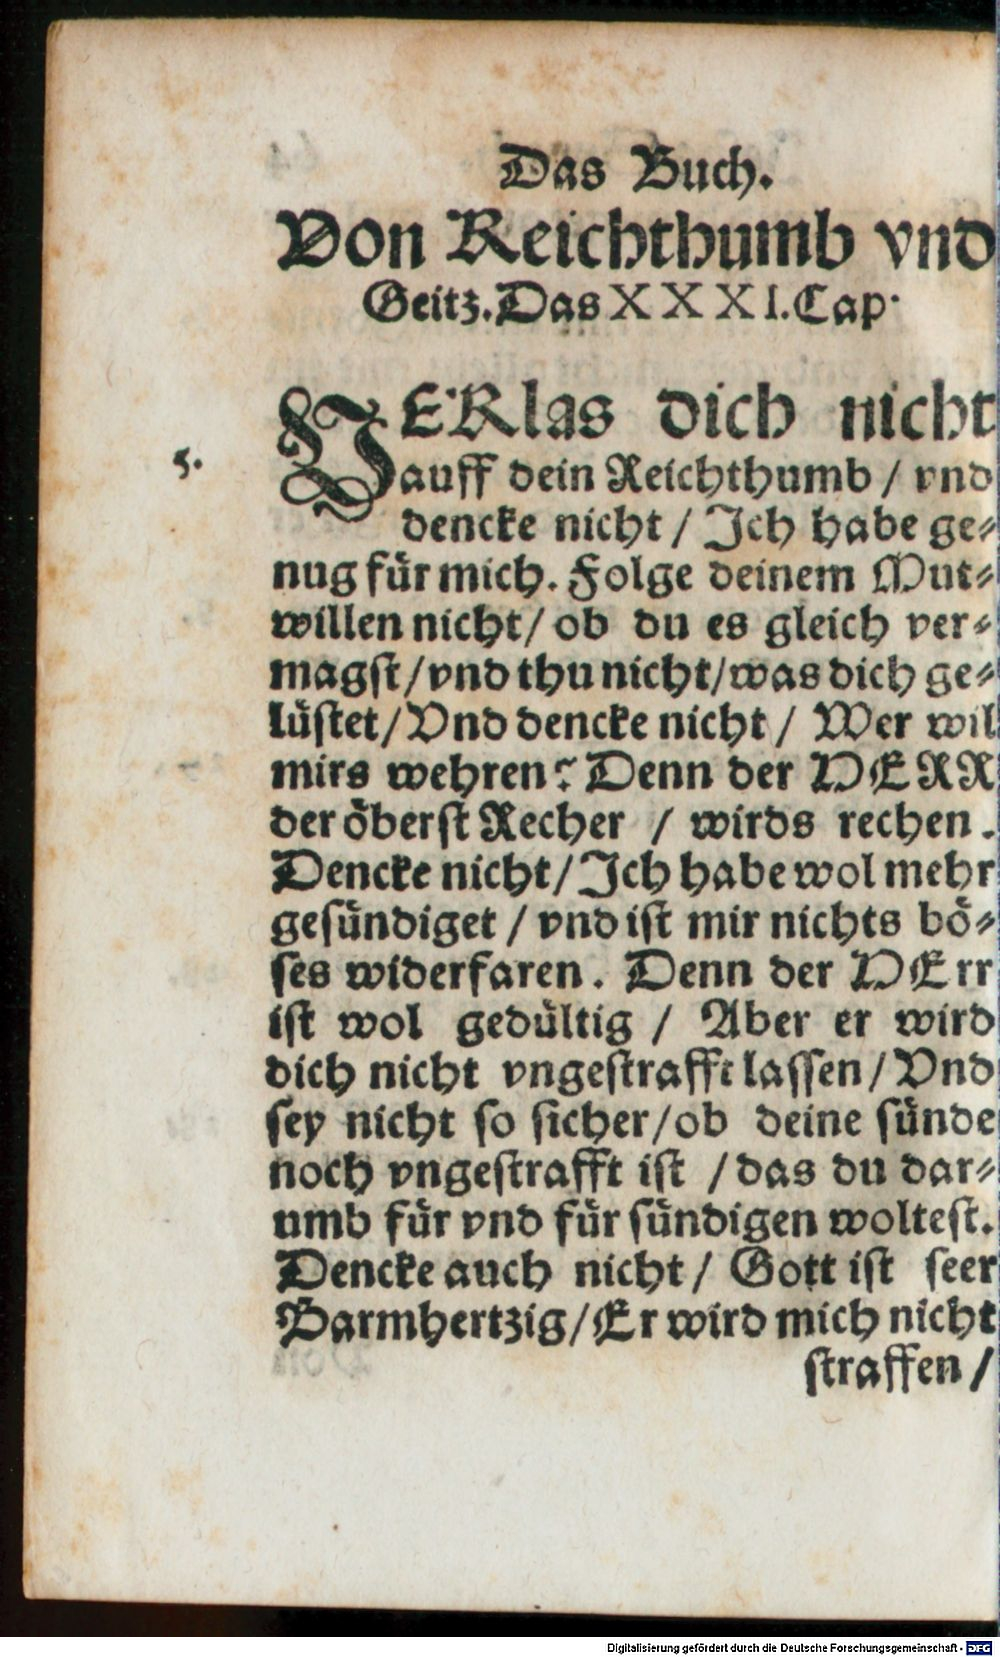 Das Buch.
Von Reichthumb vnd
Geitz. Das XXXI. Cap.
VERlas dich nicht
5.
auff dein Reichthumb / vnd
dencke nicht / Jch habe ge⸗
nug für mich. Folge deinem Mut⸗
willen nicht / ob du es gleich ver⸗
magst / vnd thu nicht / was dich ge⸗
lüstet / Vnd dencke nicht / Wer wil
mirs wehren? Denn der HERR
der öberst Recher / wirds rechen.
Dencke nicht / Jch habe wol mehr
gesündiget / vnd ist mir nichts bö⸗
ses widerfaren. Denn der HErr
ist wol gedültig / Aber er wird
dich nicht vngestrafft lassen / Vnd
sey nicht so sicher / ob deine sünde
noch vngestrafft ist / das du dar⸗
umb für vnd für sündigen woltest.
Dencke auch nicht / Gott ist seer
Barmhertzig / Er wird mich nicht
straffen /
Digitalisierung gefördert durch die Deutsche Forschungsgemeinschaft - DFG